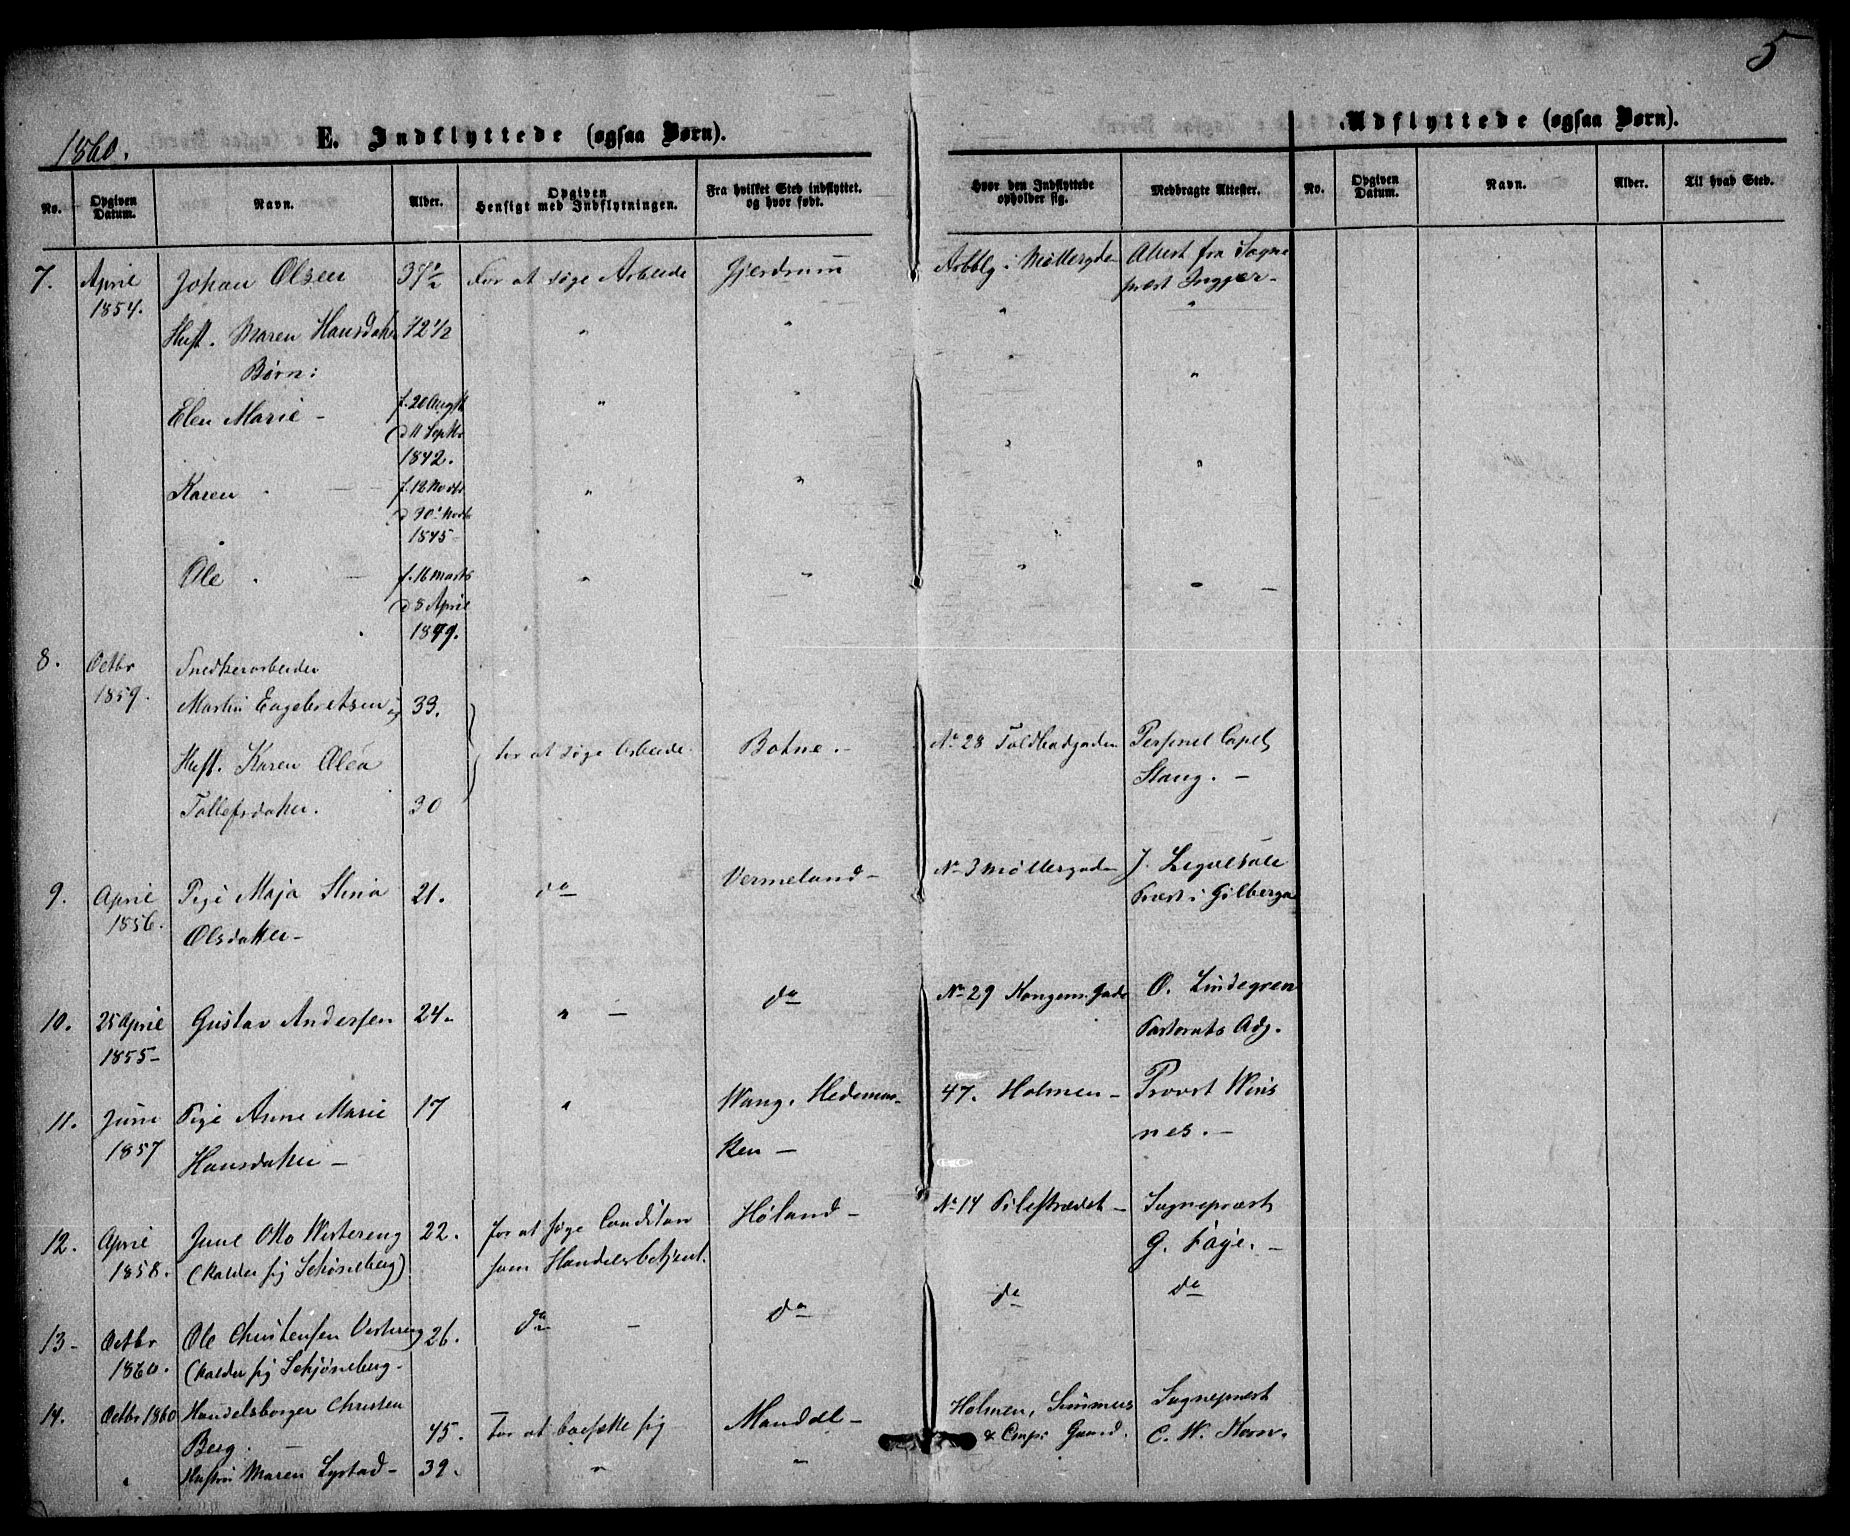 5
1860.
E. Indflyttede (ogsaa Børn).
Udflyttede (ogsaa Børn).
No.
Opgiven Datum.
Navn.
Alder.
Opgiven Hensigt med Indflytningen.
Fra hvilket Sted indflyttet. og hvor født.
Hvor den Indflyttede opholder sig.
Medbragte Attester.
No.
Opgiven Datum.
Navn.
Alder.
Til hvad Sted.
7. April Johan Olsen 37½ For at søge Arbeide Gjerdrum i Møllergden Attest fra Sogne
1854. præst
Hust. Maren Hansdatter 42 1/2 " " " "
Børn: " "
Elen Marie - f. 20 Augst " "
d 11 Septbr "
1842. "
Karen - f. 18 Novbr " "
d 30' Novbr
1845 - "
Ole - f. 16 Marts " " - -
d 8 April
1849.
8. Octbr Snedkerarbeider
1859. Martin Engebretsen og 33.
Hust. Karen Olea for at søge Arbeide. Botne. - No 28 Toldbodgaden Personel Capel
Stang. -
Tollefsdatter. 30
9. April Pige Maja Stina 21. do Vermeland - No 3 Møllergaden J.
1856. Præst i Gilberga
Olsdatter -
10. 25 April Gustav Andersen 24. " - do No 29 Kongens Gade O. Lindegren
1855 - Pastorats Adj.
11. Juni Pige Anne Marie 17 " Wang, Hedemar- 47. Holmen - Provst Wins
1857 Hansdatter - ken - nes. -
12. April Otto Westereng 22. for at søge Condition Høland - No 14 Pilestrædet - Sognepræst
1858. (kalder sig Schøneberg) som Handelsbetjent. G. Faye. -
13 - Octbr Ole Christensen Vestereng 26. do - do do do
1860. (kalder sig Schjøneberg -
14. Octbr 1860 Handelsborger Christen
Berg. - 45. For at bosætte sig Mandal - Holmen, Sognepræst
& Comp: Gaard. C. W.
" Hustru Maren Lystad - 39. " "